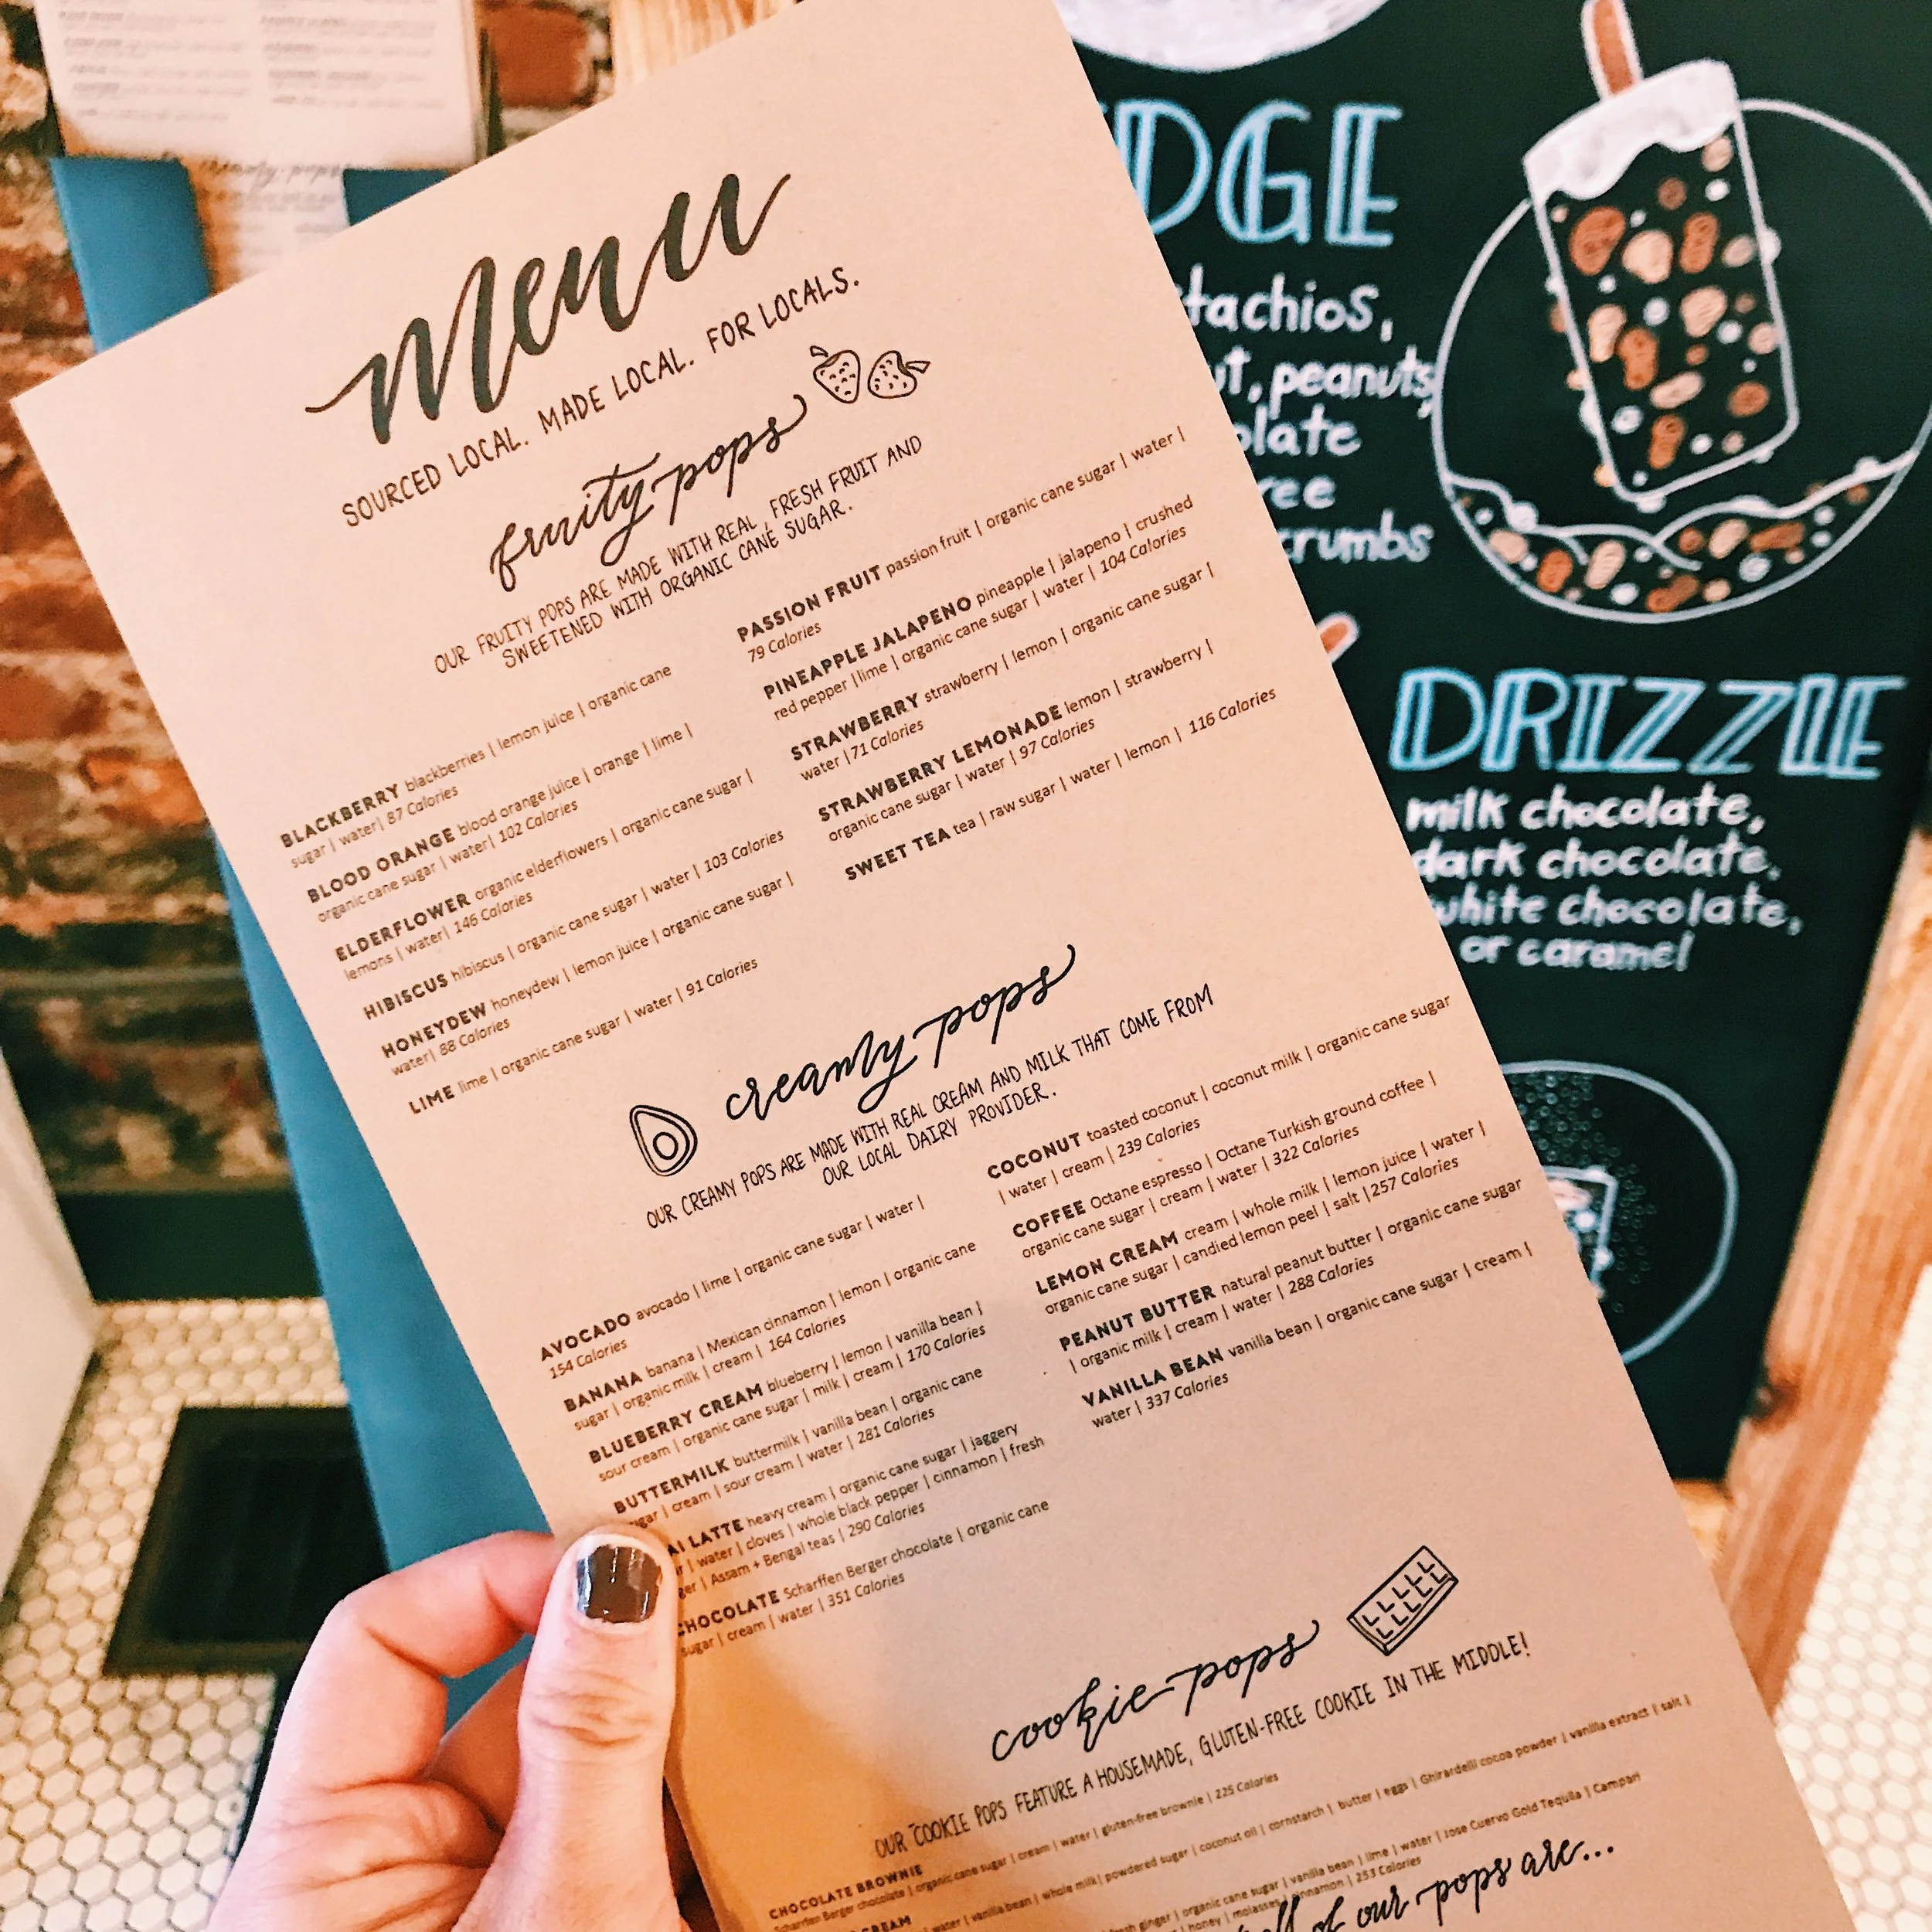 Menu
SOURCED LOCAL. MADE LOCAL. FOR LOCALS.
fruity pops
OUR FRUITY POPS ARE MADE WITH REAL, FRESH FRUIT AND
SWEETENED WITH ORGANIC CANE SUGAR.
BLACKBERRY blackberries | lemon juice | organic cane
sugar | water| 87 Calories
BLOOD ORANGE blood orange juice | orange | lime |
organic cane sugar | water| 102 Calories
ELDERFLOWER organic elderflowers | organic cane sugar |
lemons | water| 146 Calories
HIBISCUS hibiscus | organic cane sugar | water | 103 Calories
HONEYDEW honeydew | lemon juice | organic cane sugar |
water| 88 Calories
LIME lime | organic cane sugar | water | 91 Calories
PASSION FRUIT passion fruit | organic cane sugar | water |
79 Calories
PINEAPPLE JALAPENO pineapple | jalapeno | crushed
red pepper |lime | organic cane sugar | water | 104 Calories
STRAWBERRY strawberry | lemon | organic cane sugar |
water |71 Calories
STRAWBERRY LEMONADE lemon | strawberry |
organic cane sugar | water | 97 Calories
SWEET TEA tea | raw sugar | water | lemon | 116 Calories
creamy pops
OUR CREAMY POPS ARE MADE WITH REAL CREAM AND MILK THAT COME FROM
OUR LOCAL DAIRY PROVIDER.
AVOCADO avocado | lime | organic cane sugar | water |
154 Calories
BANANA banana | Mexican cinnamon | lemon | organic cane
sugar | organic milk | cream | 164 Calories
BLUEBERRY CREAM blueberry | lemon | vanilla bean |
sour cream | organic cane sugar | milk | cream | 170 Calories
BUTTERMILK buttermilk | vanilla bean | organic cane
sugar | cream | sour cream | water | 281 Calories
AI LATTE heavy cream | organic cane sugar | jaggery
| water | cloves | whole black pepper | cinnamon | fresh
ger | Assam + Bengal teas | 290 Calories
CHOCOLATE Scharffen Berger chocolate | organic cane
sugar | cream | water | 351 Calories
COCONUT toasted coconut | coconut milk | organic cane sugar
| water | cream | 239 Calories
COFFEE Octane espresso | Octane Turkish ground coffee |
organic cane sugar | cream | water | 322 Calories
LEMON CREAM cream | whole milk | lemon juice | water |
organic cane sugar | candied lemon peel | salt |257 Calories
PEANUT BUTTER natural peanut butter | organic cane sugar
| organic milk | cream | water | 288 Calories
VANILLA BEAN vanilla bean | organic cane sugar | cream |
water | 337 Calories
cookie pops
OUR COOKIE POPS FEATURE A HOUSEMADE, GLUTEN-FREE COOKIE IN THE MIDDLE!
CHOCOLATE BROWNIE
Scharffen Berger chocolate | organic cane sugar | cream | water | gluten-free brownie | 225 Calories
CREAM
water | vanilla bean | whole milk| powdered sugar | coconut oil | cornstarch | butter | eggs | Ghirardelli cocoa powder | vanilla extract | salt |
fresh ginger | organic cane sugar | vanilla bean | lime | water | Jose Cuervo Gold Tequila | Campari
| honey | molasses | cinnamon | 253 Calories
all of our pops are...
DGE
tachios,
ut, peanuts,
olate
ree
crumbs
DRIZZLE
milk chocolate,
dark chocolate,
white chocolate,
or caramel